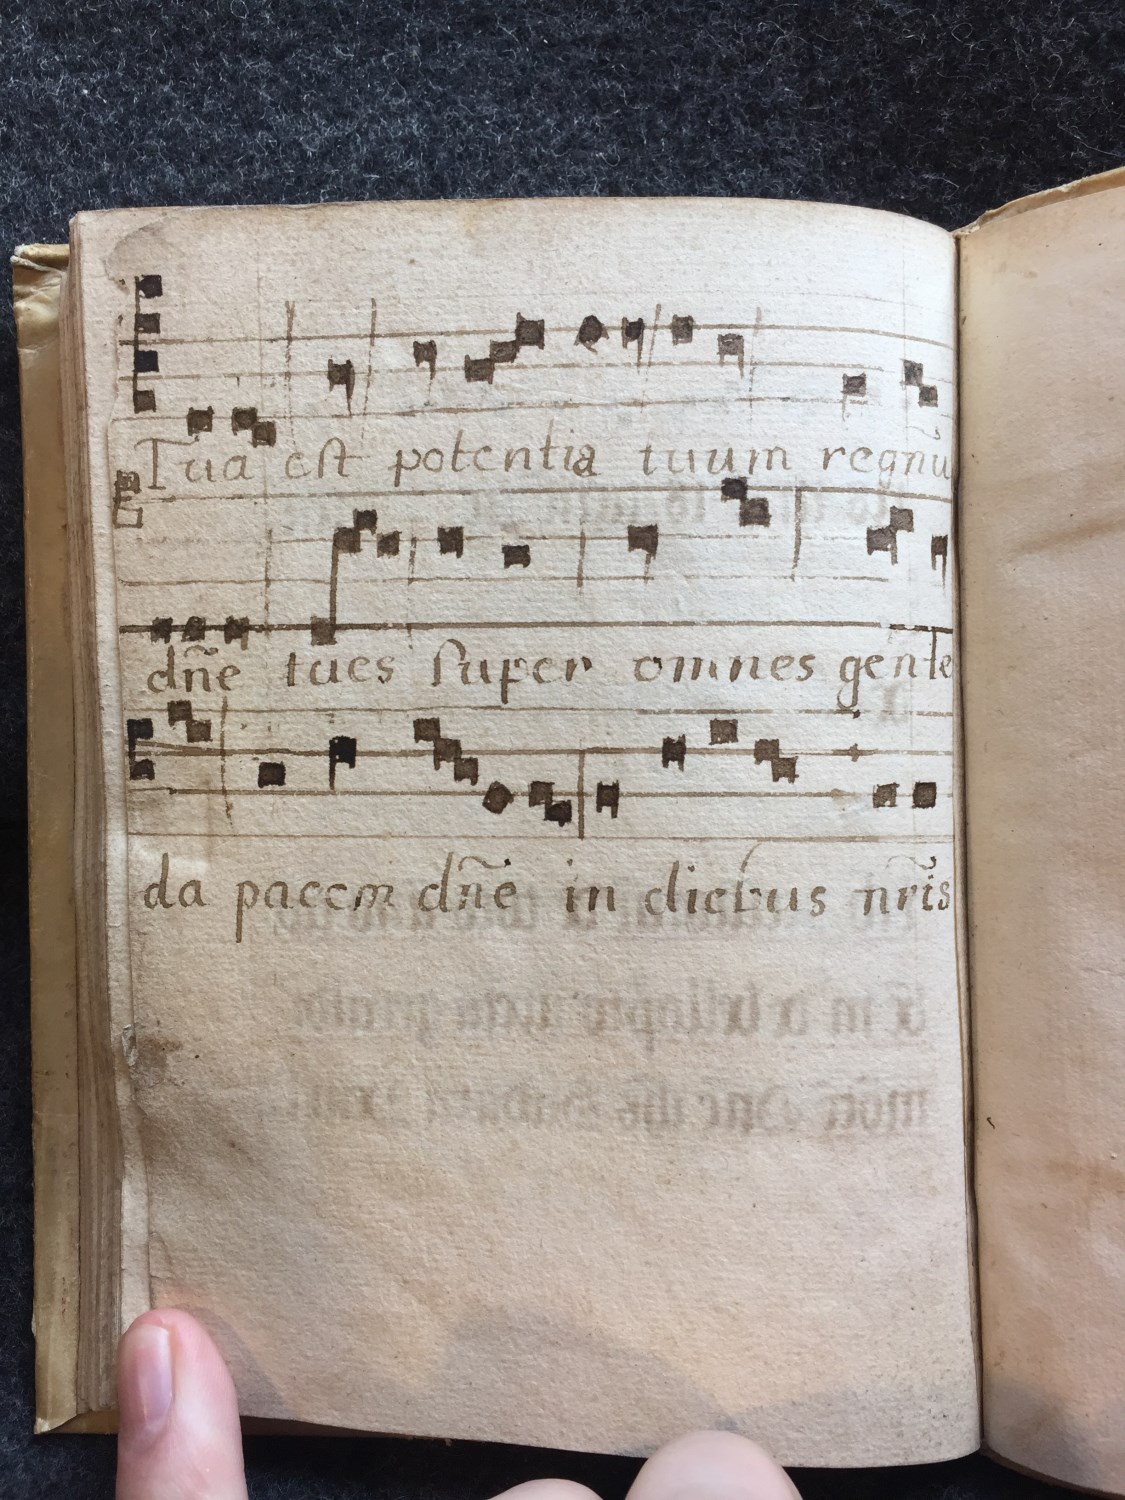 Tua est potentia tuum regnũ
dñe tues super omnes gente
da pacem dñe in diebus nr̃is